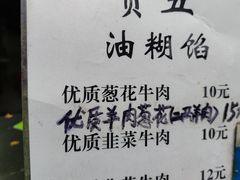 油糊馅
优质葱花牛肉 10元
优质羊肉葱花(二两羊肉) 15元
优质韭菜牛肉 10元
12元